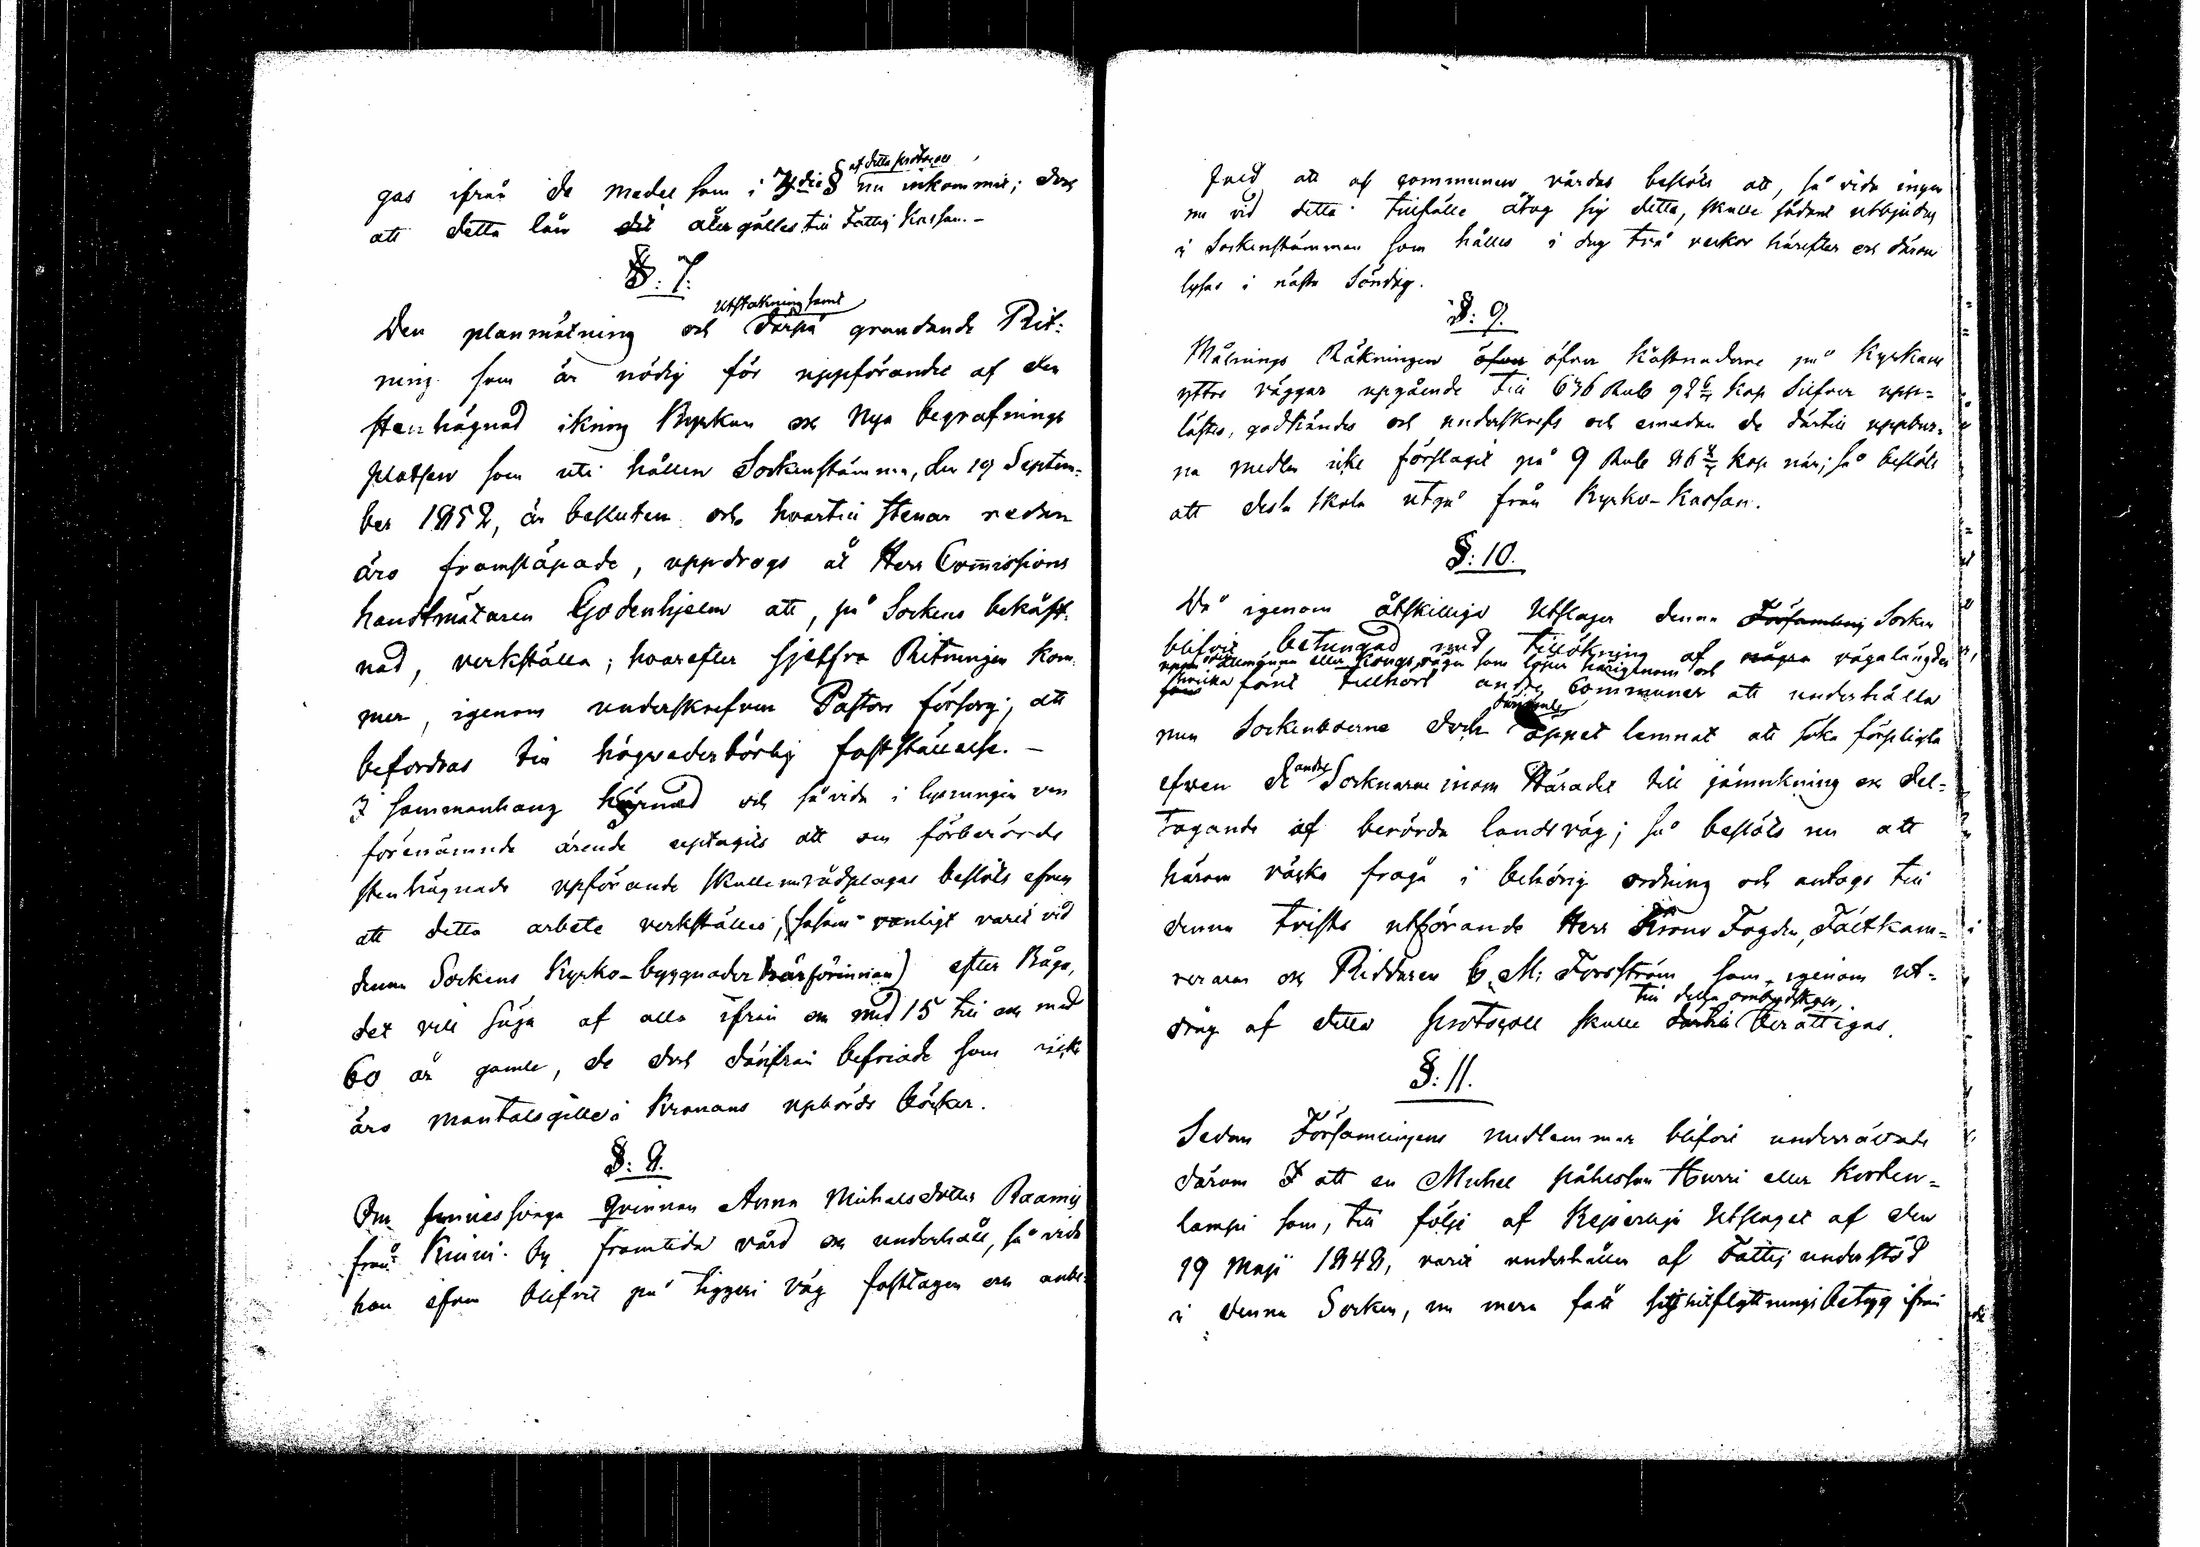 af detta protocoll
gas ifrån de medel som i 7die § nu inkommit; dock
att detta lån det återgälles till Fattig Kassan. -
§: 7.
utstakning samt
Den planmätning och därpå grundande Rit-
ning som är nödig för uppförandet af den
stenhägnad ikring Kyrkan och Nya begrafnings
platsen som uti hållen Sockenstämma, den 19 Septem-
ber 1852, är besluten och hvartill stenar redan
äro framsläpade, uppdrogs åt Herr Commissions
landtmätaren Godenhjelm att, på Sockens bekåst-
nad, verkställa; hvarefter sjelfva Ritningen kom-
mer, igenom underskrefven Pastors försorg, att
befordras till högvederbörlig fastställelse. -
I sammanhang härmed och så vida i lysningen om
förenämnde ärende uptagits att om förberörde
stenhägnads upförande skulle rådplägas beslöts efven
att detta arbete verkställes, (såsom vanligt varit vid
denna Sockens Kyrko-byggnader härförinnan) efter Röka,
det vill säga af alla ifrån och med 15 till och med
60 år gamle, de dock därifrån befriade som icke
äro mantalsgille i Kronans upbörds böcker.
§: 8.
Om sinnessvaga Qvinnan Anna Michelsdotter Raamig
från by framtida vård och underhåll, så vida
hon efven blifvit på tiggeri väg fasttagen och anbe-
fald att af communen vårdas beslöts att, så vida ingen
nu vid detta tillfälle åtog sig detta, skulle sådant utbjudas
i Sockenstämman som hålles i dag två veckor härefter och därom
lyses i nästa Söndag.
§: 9.
Målnings Räkningen öfver öfver kåstnaderne på Kyrkans
yttre väggar upgående till 636 Rub 92 6/7 Kop Silfver upp-
lästes, godkändes och underskrefs och emedan de därtill uppbur-
na medlen icke förslagit på 9 Rub 86 4/7 Kop när; så beslöts
att dessa skola utgå från Kyrko-Kassan.
§: 10.
Då igenom åtskillige Utslager denna Församling Socken
blifvit betungad med tillökning af några vägalängder
allmänna eller Kongs vägen som löper härigenom och
som hvilka förut tillhört andre Communer att underhålla
därjemte
men Sockenboerne dock öppet lemnat att söka förpligta
efven de andre Socknarne inom Häradet till jämnkning och del-
tagande af berörda landsväg; så beslöts nu att
härom väcka fråga i behörig ordning och antogs till
denna tvists utförande Herr Krono Fogden, Fältkam-
reraren och Riddaren C. M: Forsström som, igenom ut-
till detta ombudskap,
drag af detta protocoll skulle därtill berättigas.
§: 11.
Sedan Församlingens medlemmar blifvit underrättade
därom att en Michel påhlsson Hurri eller Korhen-
lampi som, till följe af Kejserliga Utslaget af den
19 Maji 1848, varit underhållen af Fattig understöd
i denna Socken, nu mera fått sitt hitflyttningsbetyg ifrån